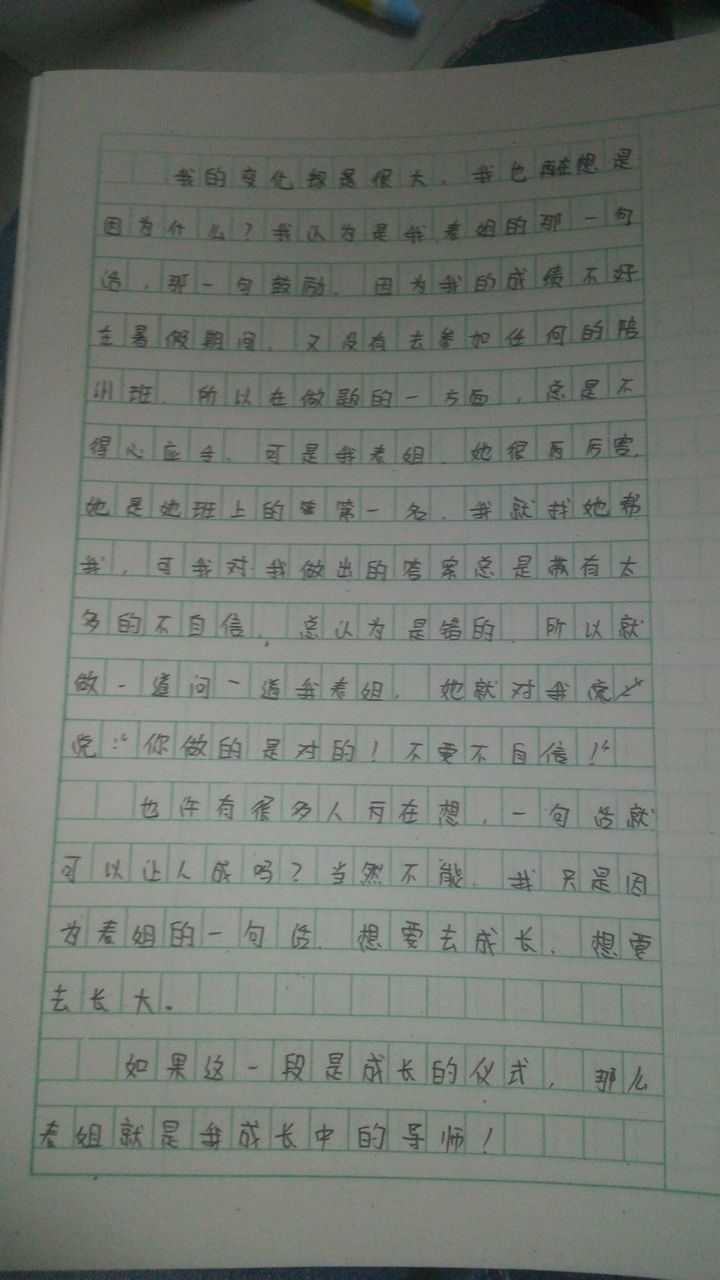 我的变化都是很大，我也再在想是
因为什么？我认为是我表姐的那一句
话，那一句鼓励，因为我的成绩不好
在暑假期间，又没有去参加任何的陪
训班，所以在做题的一方面，总是不
得心应手，可是我表姐，她很厉厉害，
她是她班上的第一名，我就找她帮
我，可我对我做出的答案总是带有太
多的不自信，总认为是错的，所以就
做一道问一道我表姐，她就对我说
说：“你做的是对的！不要不自信！”
也许有很多人在想，一句话就
可以让人成吗？当然不能，我只是因
为表姐的一句话，想要去成长，想要
去长大。
如果这一段是成长的仪式，那么
表姐就是我成长中的导师！